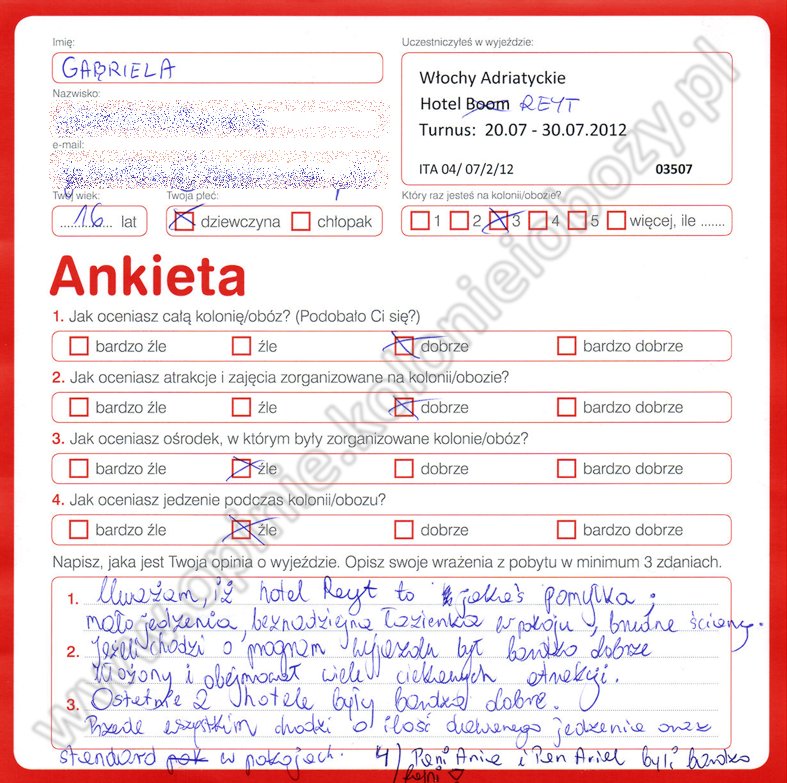 Imię:
GABRIELA
Nazwisko:
e-mail:
Twój wiek:
16 lat
Twoja płeć:
dziewczyna chłopak
Uczestniczyłeś w wyjeździe:
Włochy Adriatyckie
Hotel Boom REYT
Turnus: 20.07 - 30.07.2012
ITA 04/ 07/2/12 03507
Który raz jesteś na kolonii/obozie?
1 2 3 4 5 więcej, ile .......
Ankieta
1. Jak oceniasz całą kolonię/obóz? (Podobało Ci się?)
bardzo źle źle dobrze bardzo dobrze
2. Jak oceniasz atrakcje i zajęcia zorganizowane na kolonii/obozie?
bardzo źle źle dobrze bardzo dobrze
3. Jak oceniasz ośrodek, w którym były zorganizowane kolonie/obóz?
bardzo źle źle dobrze bardzo dobrze
4. Jak oceniasz jedzenie podczas kolonii/obozu?
bardzo źle źle dobrze bardzo dobrze
Napisz, jaka jest Twoja opinia o wyjeździe. Opisz swoje wrażenia z pobytu w minimum 3 zdaniach.
1. Uważam, iż hotel Reyt to jakaś pomyłka;
mało jedzenia, beznadziejna łazienka w pokoju, brudne ściany.
2. Jeżeli chodzi o program wyjazdu był bardzo dobrze
złożony i obejmował wiele ciekawych atrakcji.
3. Ostatnie 2 hotele były bardzo dobre.
Przede wszystkim chodzi o ilość dawanego jedzenia oraz
standard pok w pokojach. 4) Pani Ania i Pan Ariel byli bardzo
fajni ♡
www.opinie.kolonieiobozy.pl